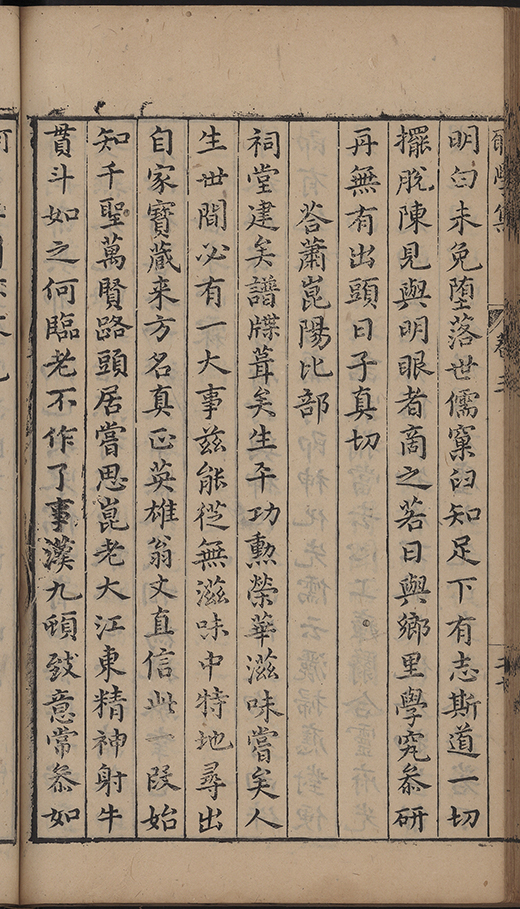 明白未免墮落世儒窠臼知足下有志斯道一切
擺脫陳見與明眼者商之若日與鄉里學究叅研
再無有出頭日子真切
荅蕭崑陽比部
祠堂建矣譜牒葺矣生平功勳榮華滋味嘗矣人
生世間必有一大事兹能從無滋味中特地尋出
自家寶藏来方名真正英雄翁丈直信此一段始
知千聖萬賢路頭居嘗思崑老大江東精神射牛
貫斗如之何臨老不作了事漢九頓致意常叅如